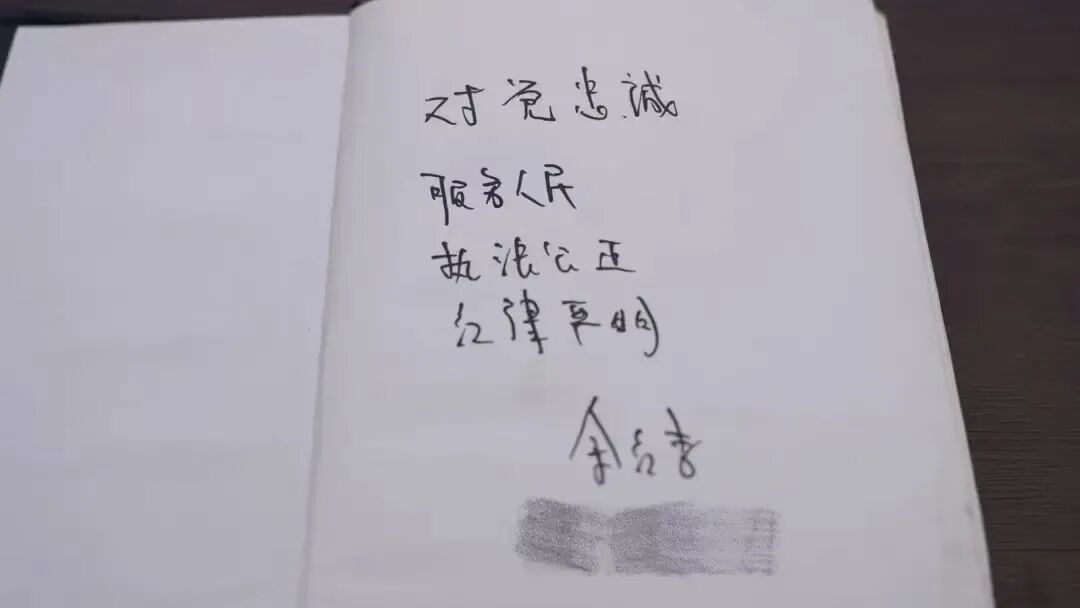 对党忠誠
服务人民
执法公正
纪律严明
余红李